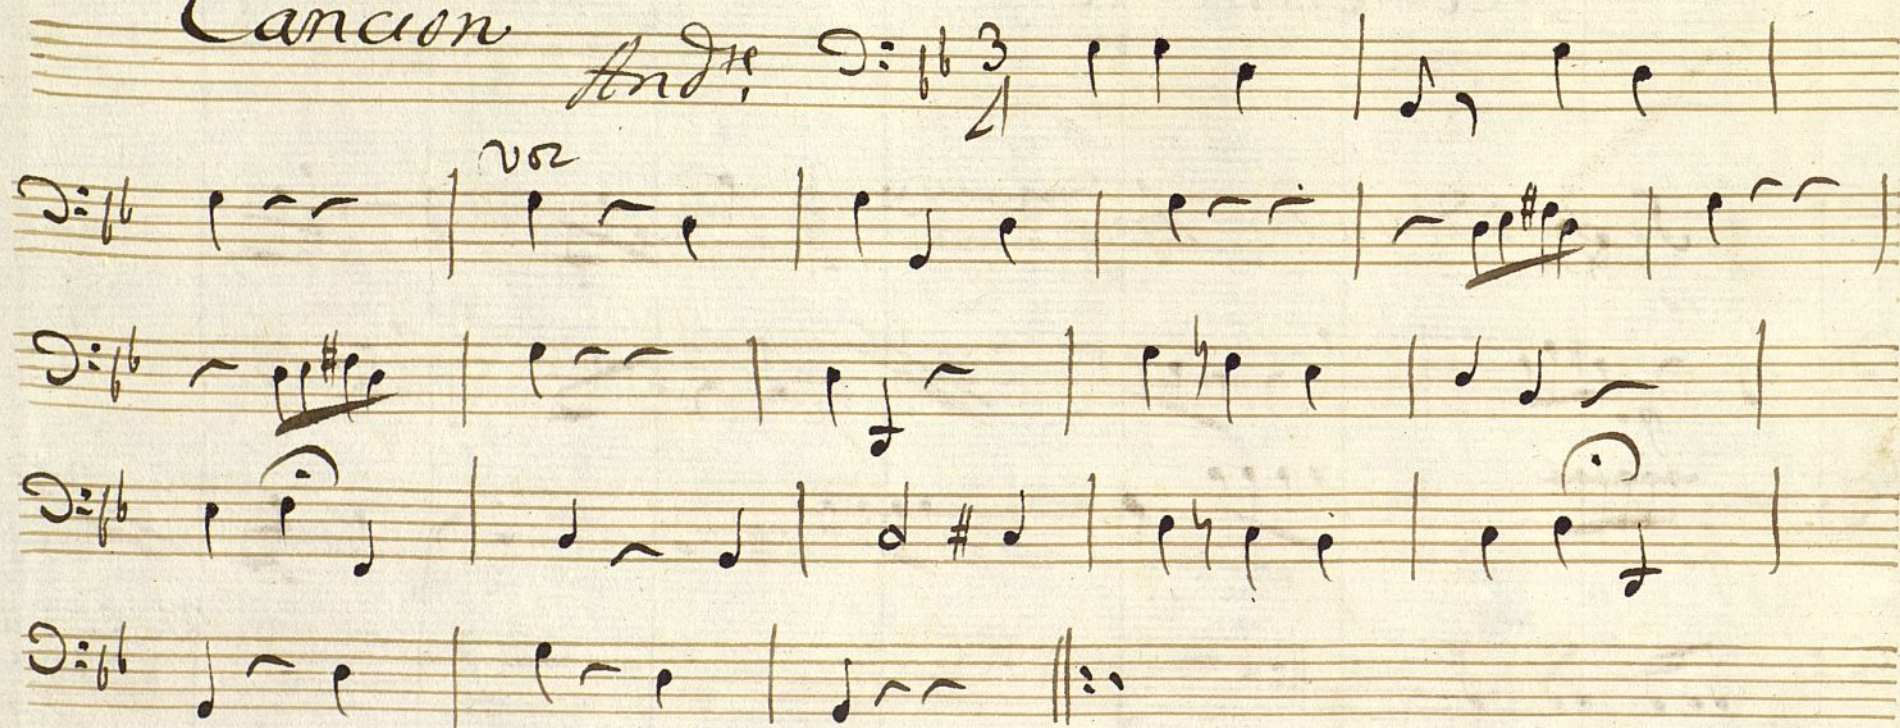 Cancion
And.te 3
4
voz